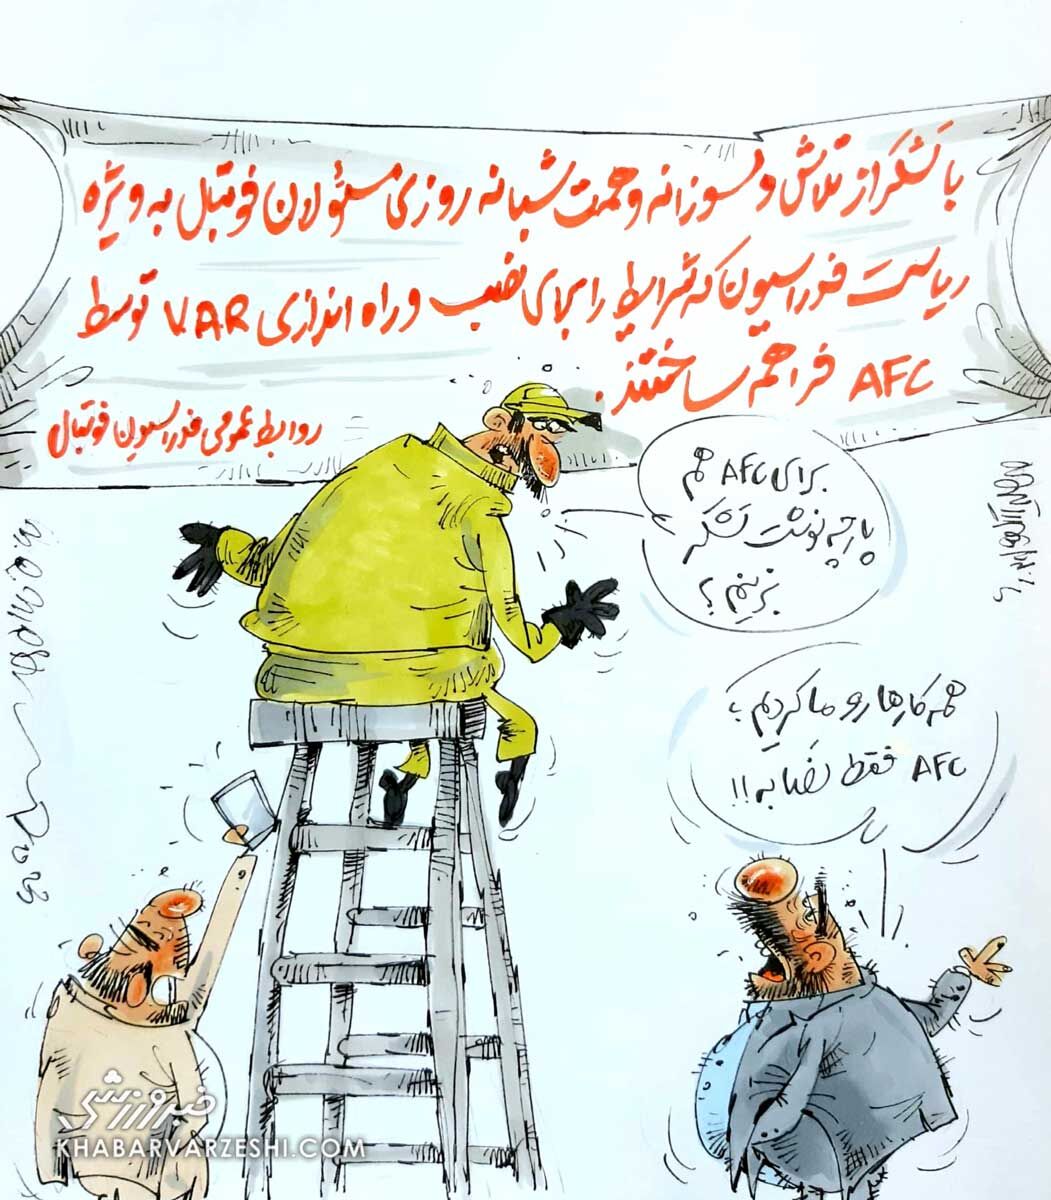 با تشکر از تلاش دلسوزانه و همت شبانه روزی مسئولان فوتبال به ویژه
ریاست فدراسیون که شرایط را برای نصب و راه اندازی VAR توسط
AFC فراهم ساختند.
روابط عمومی فدراسیون فوتبال
برای AFC هم
پارچه نوشت تشکر
بزنیم؟
همه کارها رو ما کردیم؛
AFC فقط نصابه!!
2023
خبرورزشی
KHABARVARZESHI.COM